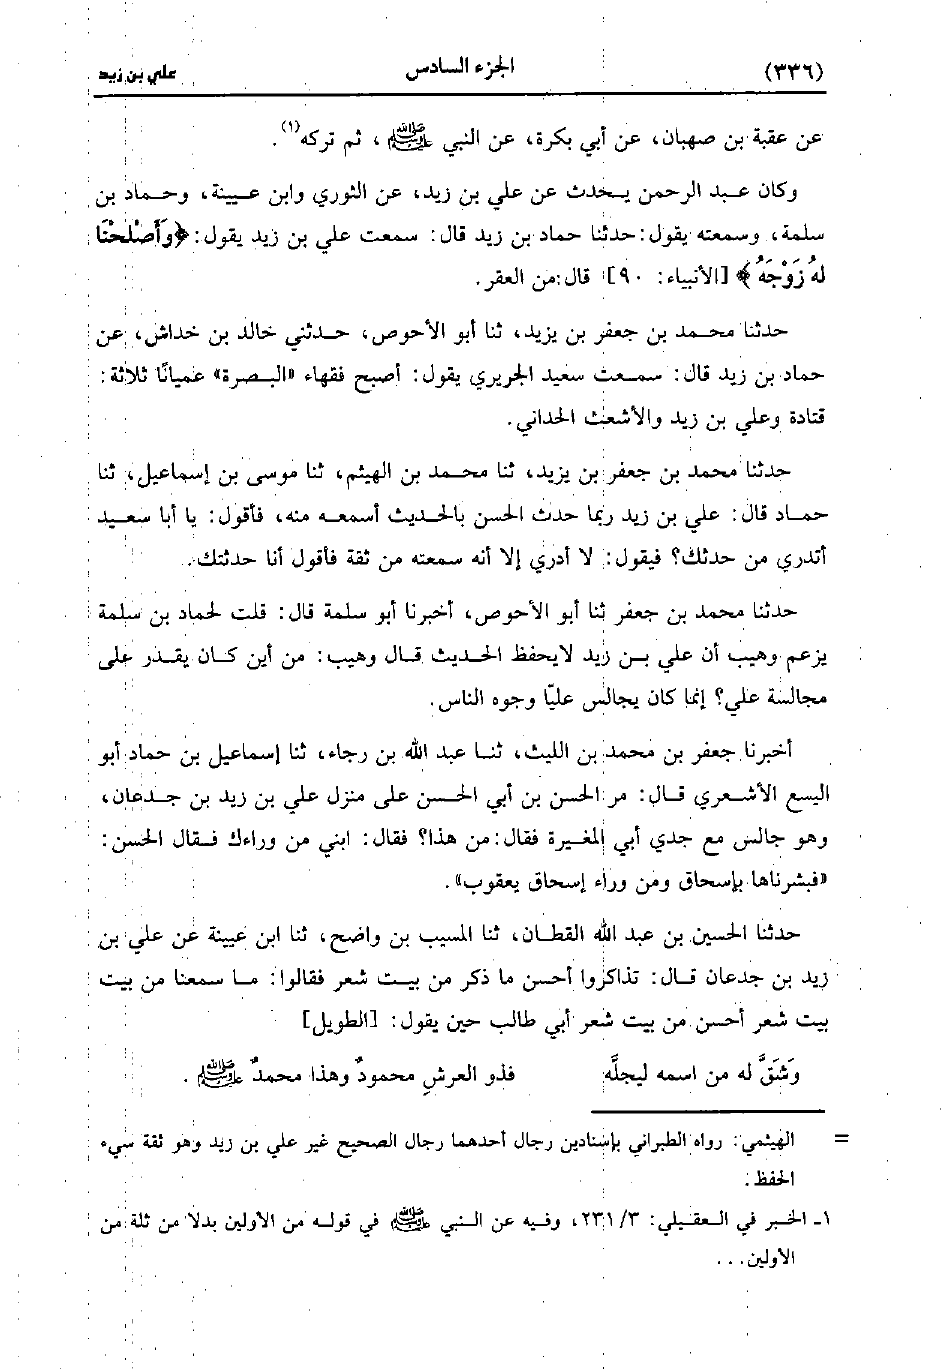 (٣٣٦) الجزء السادس علي بن زيد
عن عقبة بن صهبان، عن أبي بكرة، عن النبي ﷺ، ثم تركه(١).
وكان عبد الرحمن يحدث عن علي بن زيد، عن الثوري وابن عيينة، وحماد بن
سلمة، وسمعته يقول: حدثنا حماد بن زيد قال: سمعت علي بن زيد يقول: ﴿وَأَصْلَحْنَا
لَهُ زَوْجَهُ﴾ [الأنبياء: ٩٠] قال: من العقر.
حدثنا محمد بن جعفر بن يزيد، ثنا أبو الأحوص، حدثني خالد بن خداش، عن
حماد بن زيد قال: سمعت سعيد الجريري يقول: أصبح فقهاء «البصرة» عميانًا ثلاثة:
قتادة وعلي بن زيد والأشعث الحداني.
حدثنا محمد بن جعفر بن يزيد، ثنا محمد بن الهيثم، ثنا موسى بن إسماعيل، ثنا
حماد قال: علي بن زيد ربما حدث الحسن بالحديث أسمعه منه، فأقول: يا أبا سعيد
أتدري من حدثك؟ فيقول: لا أدري إلا أنه سمعته من ثقة فأقول أنا حدثتك.
حدثنا محمد بن جعفر ثنا أبو الأحوص، أخبرنا أبو سلمة قال: قلت لحماد بن سلمة
يزعم وهيب أن علي بن زيد لايحفظ الحديث قال وهيب: من أين كان يقدر على
مجالسة علي؟ إنما كان يجالس عليّا وجوه الناس.
أخبرنا جعفر بن محمد بن الليث، ثنا عبد الله بن رجاء، ثنا إسماعيل بن حماد أبو
اليسع الأشعري قال: مر الحسن بن أبي الحسن على منزل علي بن زيد بن جدعان،
وهو جالس مع جدي أبي المغيرة فقال: من هذا؟ فقال: ابني من وراءك فقال الحسن:
«فبشرناها بإسحاق ومن وراء إسحاق يعقوب».
حدثنا الحسين بن عبد الله القطان، ثنا المسيب بن واضح، ثنا ابن عيينة عن علي بن
زيد بن جدعان قال: تذاكروا أحسن ما ذكر من بيت شعر فقالوا: ما سمعنا من بيت
بيت شعر أحسن من بيت شعر أبي طالب حين يقول: [الطويل]
وَشَقَّ له من اسمه ليجلَّه فذو العرشِ محمودٌ وهذا محمدٌ ﷺ.
= الهيثمي: رواه الطبراني بإسنادين رجال أحدهما رجال الصحيح غير علي بن زيد وهو ثقة سيء
الحفظ.
١ـ الخبر في العقيلي: ٣/ ٢٣١، وفيه عن النبي ﷺ في قوله من الأولين بدلا من ثلة من
الأولين...